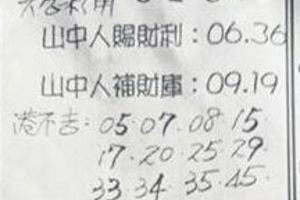 山中人賜財利：06.36
山中人補財庫：09.19
港不吉：05.07.08.15
17.20.25.29
33.34.35.45